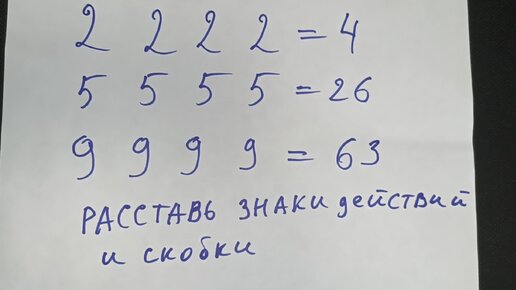 2 2 2 2 = 4
5 5 5 5 = 26
9 9 9 9 = 63
РАССТАВЬ ЗНАКИ действий
и скобки